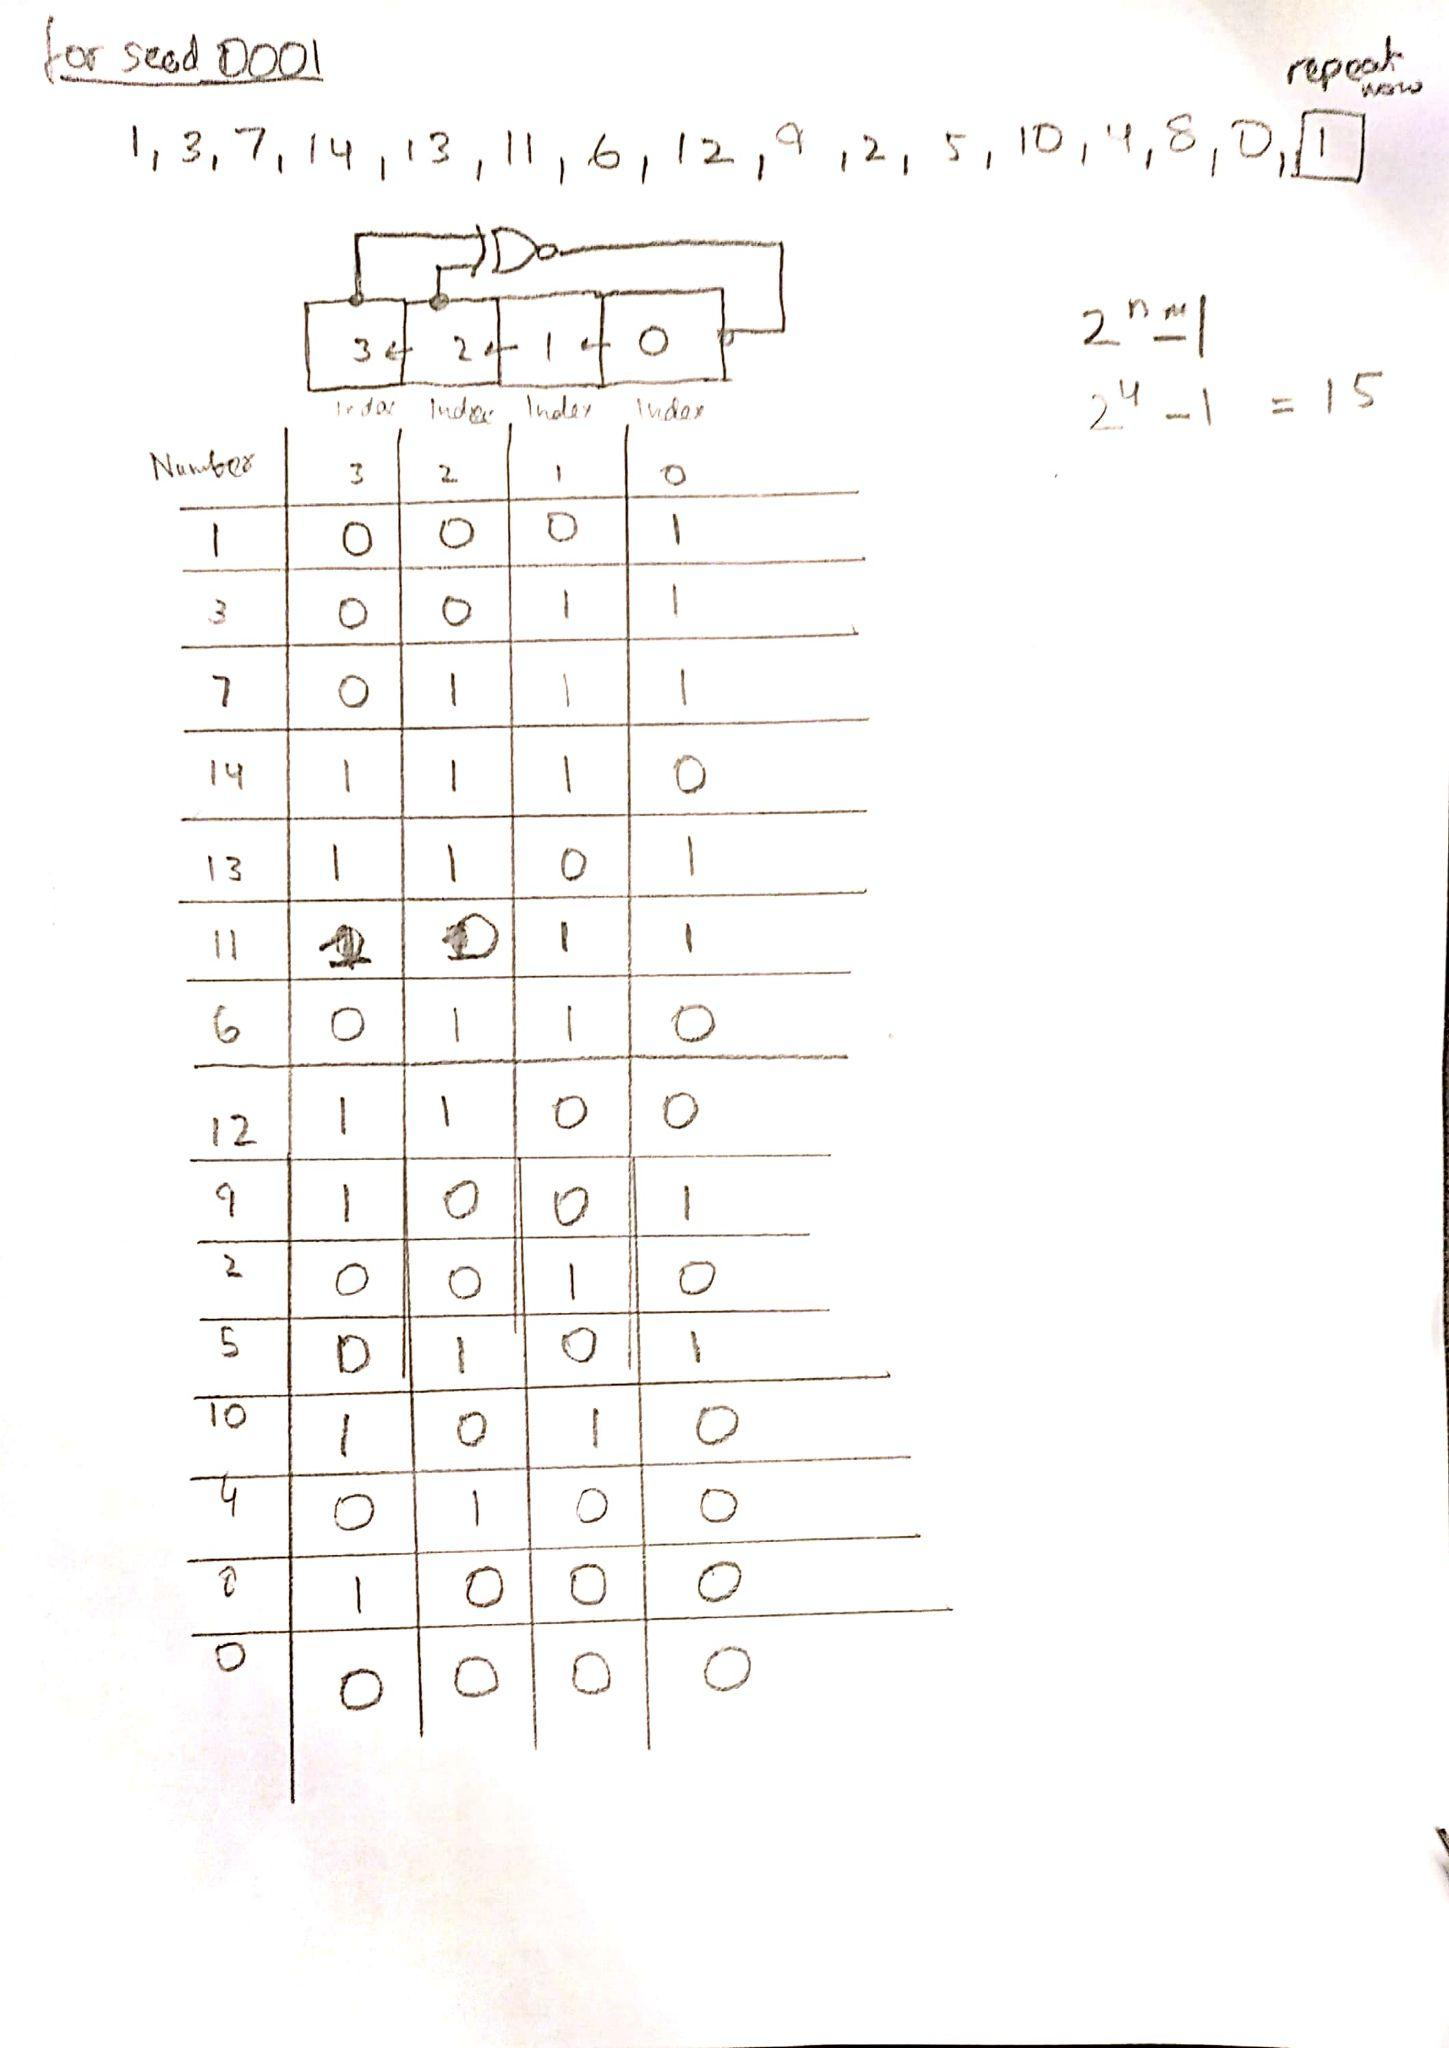 for seed 0001
repeat
now
1, 3, 7, 14, 13, 11, 6, 12, 9, 2, 5, 10, 4, 8, 0, 1
3 2 1 0
2ⁿ - 1
2⁴ - 1 = 15
Index Index Index Index
Number 3 2 1 0
1 0 0 0 1
3 0 0 1 1
7 0 1 1 1
14 1 1 1 0
13 1 1 0 1
11 1 0 1 1
6 0 1 1 0
12 1 1 0 0
9 1 0 0 1
2 0 0 1 0
5 0 1 0 1
10 1 0 1 0
4 0 1 0 0
8 1 0 0 0
0 0 0 0 0